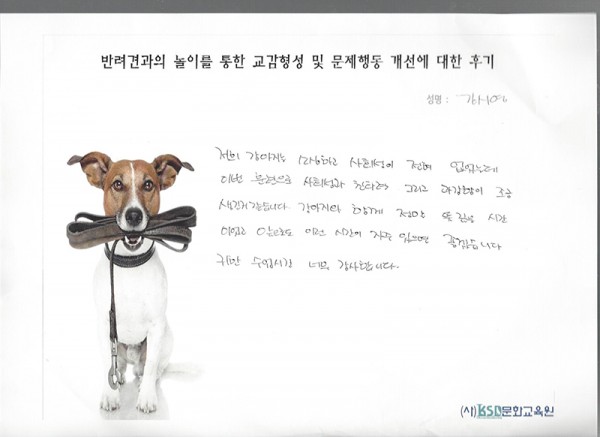 반려견과의 놀이를 통한 교감형성 및 문제행동 개선에 대한 후기
성명 :
저희 강아지는 소심하고 사회성이 전혀 없었는데
이번 훈련으로 사회성과 친화력 그리고 자신감이 조금
생긴거같습니다 강아지와 함께 정말 뜻 깊은 시간
이었고 앞으로도 이런 시간이 자주 있으면 좋겠습니다
귀한 수업시간 너무 감사합니다.
(사)KSD문화교육원